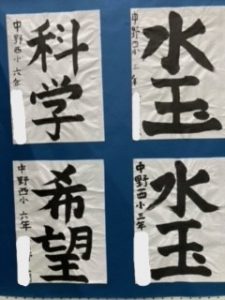 水玉
中野西小 三年
科学
中野西小 六年
水玉
中野西小 三年
希望
中野西小 六年